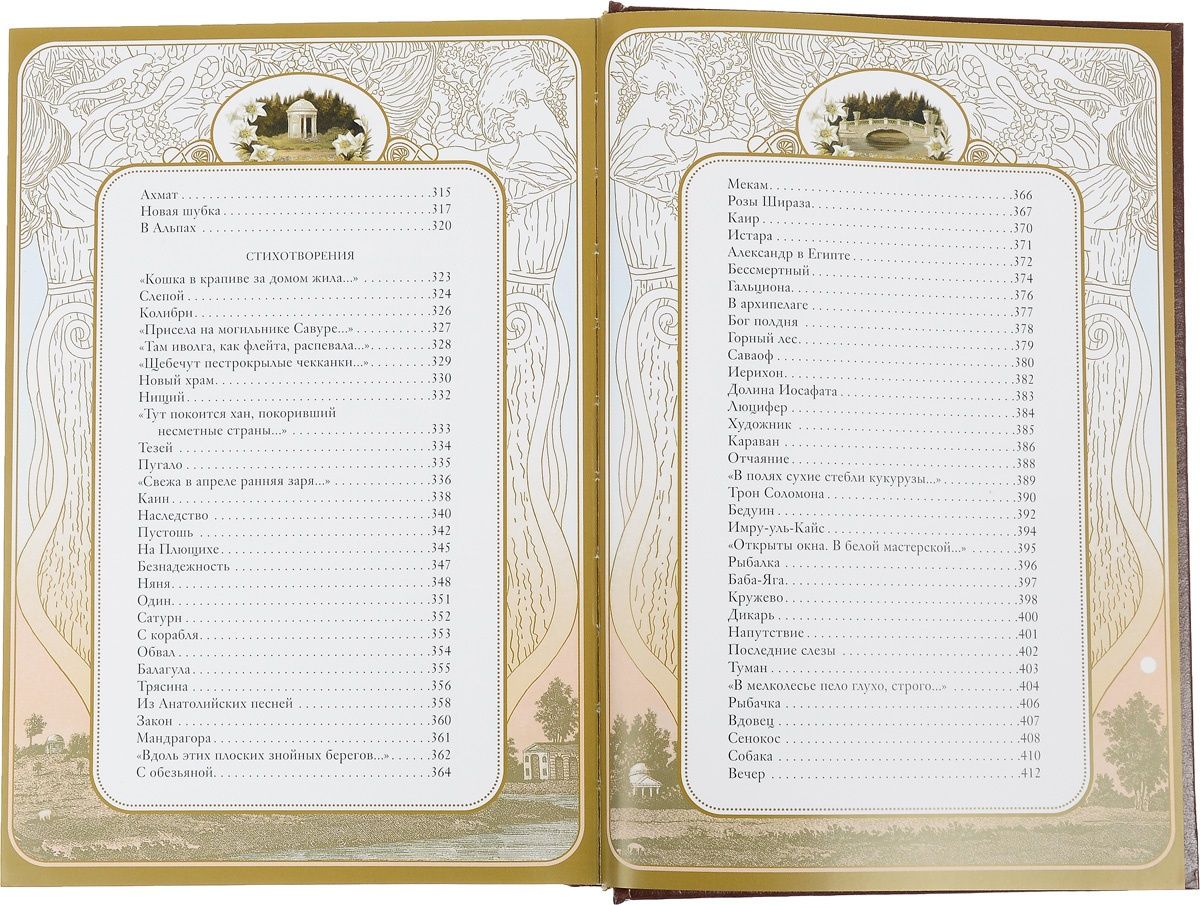 Ахмат . . . . . . . . . . 315
Новая шубка . . . . . . . . . . 317
В Альпах . . . . . . . . . . 320
СТИХОТВОРЕНИЯ
«Кошка в крапиве за домом жила...» . . . . . . 323
Слепой . . . . . . . . . . 324
Колибри . . . . . . . . . . 326
«Присела на могильнике Савуре...» . . . . . . 327
«Там иволга, как флейта, распевала...» . . . . . . 328
«Щебечут пестрокрылые чекканки...» . . . . . . 329
Новый храм . . . . . . . . . . 330
Нищий . . . . . . . . . . 332
«Тут покоится хан, покоривший
несметные страны...» . . . . . . . . . . 333
Тезей . . . . . . . . . . 334
Пугало . . . . . . . . . . 335
«Свежа в апреле ранняя заря...» . . . . . . . . 336
Каин . . . . . . . . . . 338
Наследство . . . . . . . . . . 340
Пустошь . . . . . . . . . . 342
На Плющихе . . . . . . . . . . 345
Безнадежность . . . . . . . . . . 347
Няня . . . . . . . . . . 348
Один . . . . . . . . . . 351
Сатурн . . . . . . . . . . 352
С корабля . . . . . . . . . . 353
Обвал . . . . . . . . . . 354
Балагула . . . . . . . . . . 355
Трясина . . . . . . . . . . 356
Из Анатолийских песней . . . . . . . . . . 358
Закон . . . . . . . . . . 360
Мандрагора . . . . . . . . . . 361
«Вдоль этих плоских знойных берегов...» . . . . 362
С обезьяной . . . . . . . . . . 364
Мекам . . . . . . . . . . 366
Розы Шираза . . . . . . . . . . 367
Каир . . . . . . . . . . 370
Истара . . . . . . . . . . 371
Александр в Египте . . . . . . . . . . 372
Бессмертный . . . . . . . . . . 374
Гальциона . . . . . . . . . . 376
В архипелаге . . . . . . . . . . 377
Бог полдня . . . . . . . . . . 378
Горный лес . . . . . . . . . . 379
Саваоф . . . . . . . . . . 380
Иерихон . . . . . . . . . . 382
Долина Иосафата . . . . . . . . . . 383
Люцифер . . . . . . . . . . 384
Художник . . . . . . . . . . 385
Караван . . . . . . . . . . 386
Отчаяние . . . . . . . . . . 388
«В полях сухие стебли кукурузы...» . . . . . . . . 389
Трон Соломона . . . . . . . . . . 390
Бедуин . . . . . . . . . . 392
Имру-уль-Кайс . . . . . . . . . . 394
«Открыты окна. В белой мастерской...» . . . . . . 395
Рыбалка . . . . . . . . . . 396
Баба-Яга . . . . . . . . . . 397
Кружево . . . . . . . . . . 398
Дикарь . . . . . . . . . . 400
Напутствие . . . . . . . . . . 401
Последние слезы . . . . . . . . . . 402
Туман . . . . . . . . . . 403
«В мелколесье пело глухо, строго...» . . . . . . . . 404
Рыбачка . . . . . . . . . . 406
Вдовец . . . . . . . . . . 407
Сенокос . . . . . . . . . . 408
Собака . . . . . . . . . . 410
Вечер . . . . . . . . . . 412